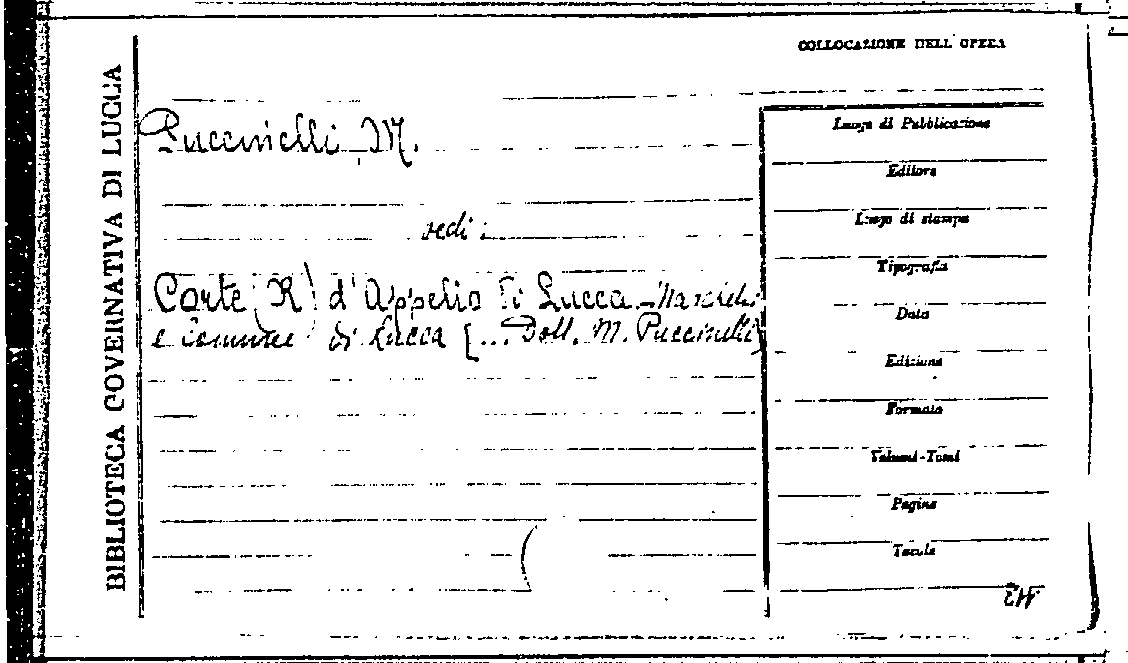 COLLOCAZIONE DELL'OPERA
BIBLIOTECA GOVERNATIVA DI LUCCA
Puccinelli, M.
vedi:
Corte (R) d'Appello di Lucca - Narcisi
e Comune di Lucca (... Dott. M. Puccinelli)
Luogo di Pubblicazione
Editore
Luogo di stampa
Tipografia
Data
Edizione
Formato
Volumi-Tomi
Pagine
Tavole